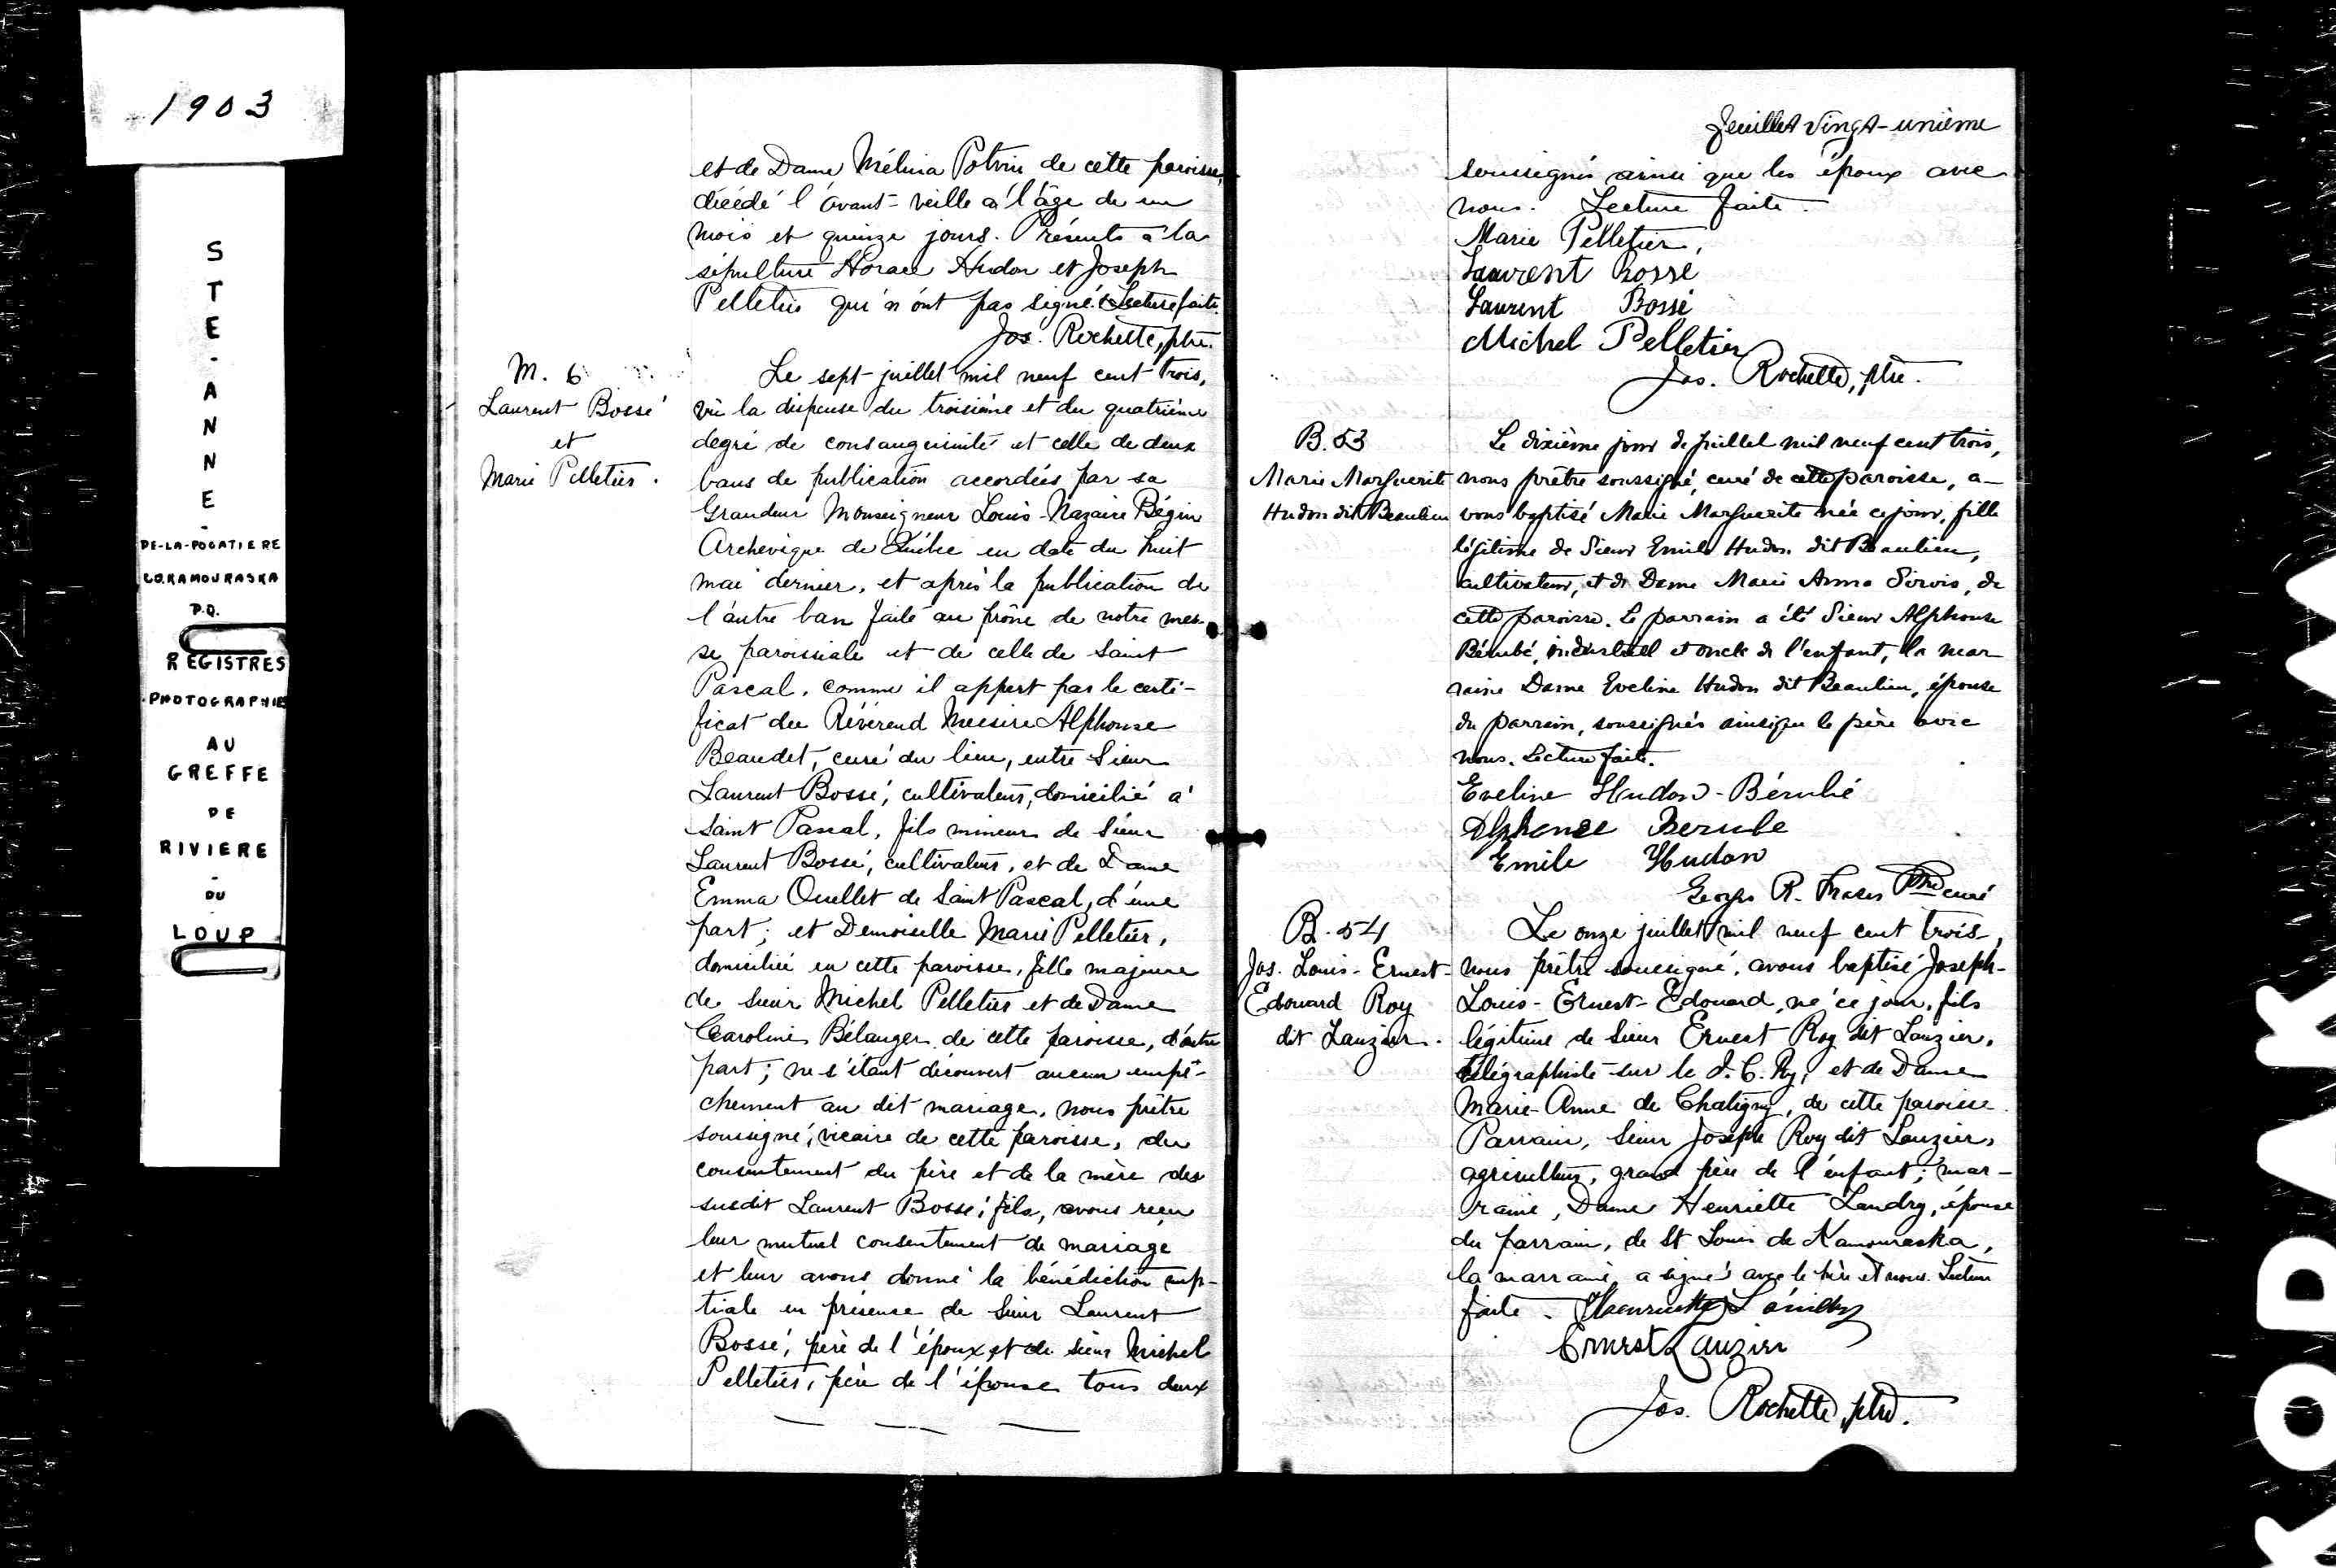 1903
STE-ANNE-
DE-LA-POCATIERE
CO.KAMOURASKA
P.Q.
REGISTRES
PHOTOGRAPHIE
AU
GREFFE
DE
RIVIERE
-
DU
LOUP
et de Dame Mélina Potvin de cette paroisse,
décédé l'avant-veille à l'âge de un
mois et quinze jours. Présents à la
sépulture Horace Hudon et Joseph
Pelletier qui n'ont pas signé. Lecture faite.
Jos. Rochette, ptre.
M. 6
Laurent Bossé
et
Marie Pelletier.
Le sept juillet mil neuf cent trois,
vu la dispense du troisième et du quatrième
degré de consanguinité et celle de deux
bans de publication accordées par sa
Grandeur Monseigneur Louis-Nazaire Bégin
Archevêque de Québec en date du huit
mai dernier, et après la publication de
l'autre ban faite au prône de notre mes-
se paroissiale et de celle de Saint
Pascal, comme il appert par le certi-
ficat du Révérend Messire Alphonse
Beaudet, curé du lieu, entre Sieur
Laurent Bossé, cultivateur, domicilié à
Saint Pascal, fils mineur de Sieur
Laurent Bossé, cultivateur, et de Dame
Emma Ouellet de Saint Pascal, d'une
part; et Demoiselle Marie Pelletier,
domiciliée en cette paroisse, fille majeure
de sieur Michel Pelletier et de Dame
Caroline Bélanger de cette paroisse, d'autre
part; ne s'étant découvert aucun empê-
chement au dit mariage, nous prêtre
soussigné, vicaire de cette paroisse, du
consentement du père et de la mère des
susdit Laurent Bossé, fils, avons reçu
leur mutuel consentement de mariage
et leur avons donné la bénédiction nup-
tiale en présence de Sieur Laurent
Bossé, père de l'époux, et de sieur Michel
Pelletier, père de l'épouse tous deux
Feuillet vingt-unième
soussignés ainsi que les époux avec
nous. Lecture faite.
Marie Pelletier,
Laurent Bossé
Laurent Bossé
Michel Pelletier
Jos. Rochette, ptre.
B. 53
Marie Marguerite
Hudon dit Beaulieu
Le dixième jour de juillet mil neuf cent trois,
nous prêtre soussigné, curé de cette paroisse, a-
vons baptisé Marie Marguerite née ce jour, fille
légitime de Sieur Emile Hudon dit Beaulieu,
cultivateur, et de Dame Marie Anna Sirois, de
cette paroisse. Le parrain a été Sieur Alphonse
Bérubé, industriel et oncle de l'enfant, la mar
raine Dame Eveline Hudon dit Beaulieu, épouse
du parrain, soussignés ainsi que le père avec
nous. Lecture faite.
Eveline Hudon-Bérubé
Alphonse Berube
Emile Hudon
Georges R. Fraser Ptre curé
B. 54
Jos. Louis-Ernest-
Edouard Roy
dit Lauzier.
Le onze juillet mil neuf cent trois,
nous prêtre soussigné, avons baptisé Joseph-
Louis-Ernest-Edouard, né ce jour, fils
légitime de Sieur Ernest Roy dit Lauzier,
télégraphiste sur le I.C. Ry, et de Dame
Marie-Anne de Chatigny, de cette paroisse.
Parrain, Sieur Joseph Roy dit Lauzier,
agriculteur, grand père de l'enfant; mar-
raine, Dame Henriette Landry, épouse
du parrain, de St Louis de Kamouraska,
la marraine a signé avec le père et nous. Lecture
faite. Henriette Landry
Ernest Lauzier
Jos. Rochette, ptre.
KODAK